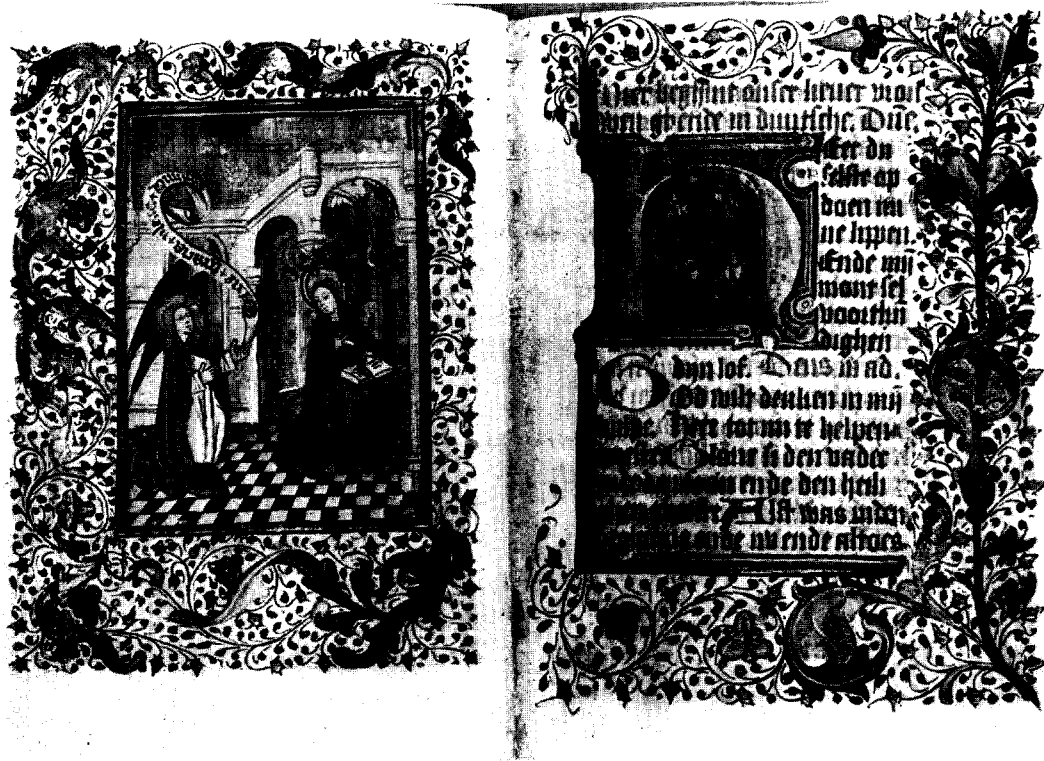 Hier beghint onser liever vrou
wen ghetide in duutsche. Dñe
Here du
selste op
doen mi
ne lippen.
Ende mijn
mont sel
voortkun
dighen
dijn lof. Deus in ad.
God wilt denken in mijn
hulpe. Here tot mi te helpen
Glorie si den vader
ende den heili
Alst was inden
ende nu ende altoes